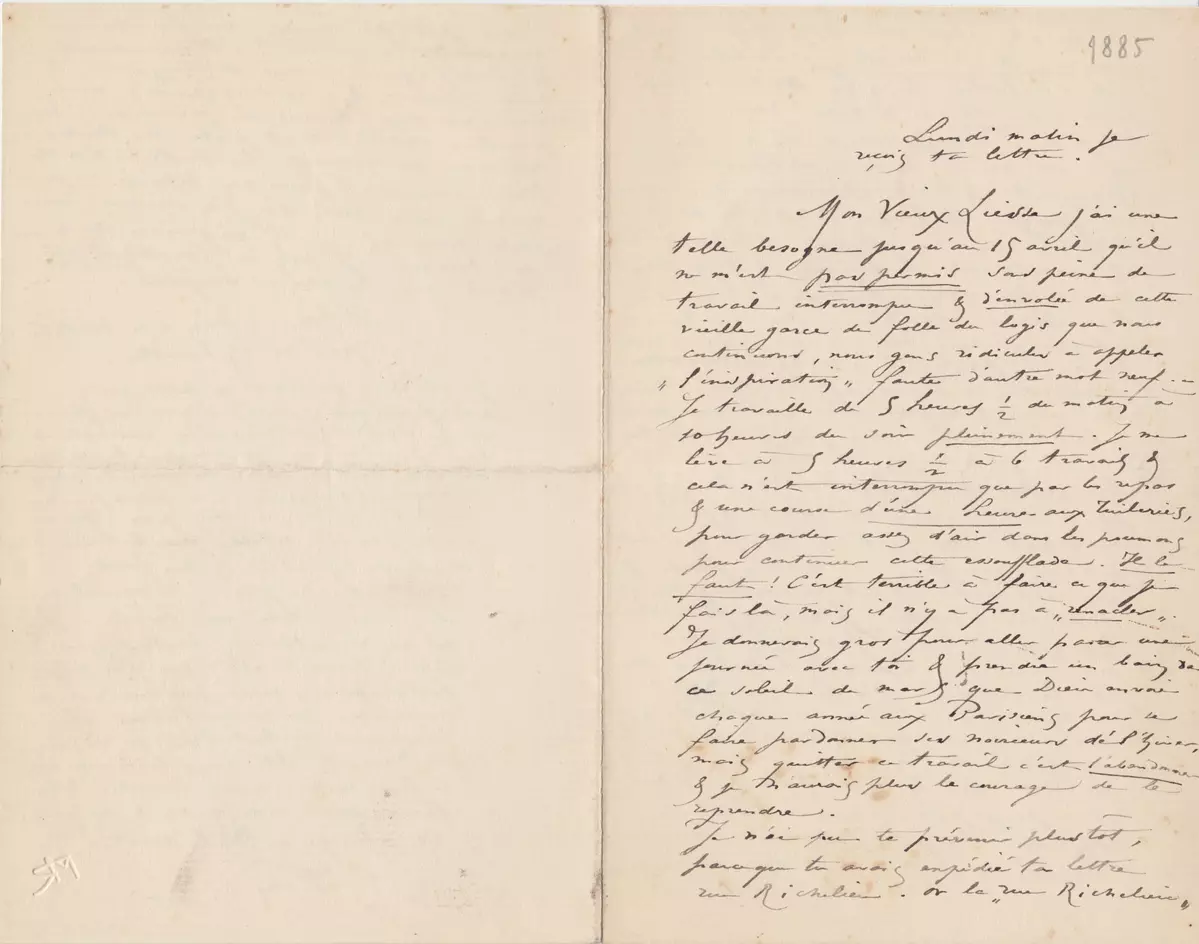 1885
Lundi matin je
reçois ta lettre.
Mon Vieux Liesse j'ai une
telle besogne jusqu'au 15 avril qu'il
ne m'est pas permis sous peine de
travail interrompu & d'envolée de cette
vieille garce de folle du logis que nous
continuons, nous gens ridicules à appeler
"l'inspiration" faute d'autre mot neuf. —
Je travaille de 5 heures ½ du matin à
10 heures du soir pleinement. Je me
lève à 5 heures ½ à 6 travail &
cela n'est interrompu que par les repas
& une course d'une heure aux Tuileries,
pour garder assez d'air dans les poumons
pour continuer cette essoufflade. Il le
faut ! C'est terrible à faire ce que je
fais là, mais il n'y a pas à "renacler".
Je donnerais gros pour aller passer une
journée avec toi & prendre un bain de
ce soleil de mars que Dieu envoie
chaque année aux Parisiens pour se
faire pardonner ses noirceurs de l'hiver,
mais quitter ce travail c'est l'abandonner
& je n'aurais plus le courage de le
reprendre.
Je n'ai pu te prévenir plustôt,
parceque tu avais expédié ta lettre
rue Richelieu. or la "rue Richelieu"
MR